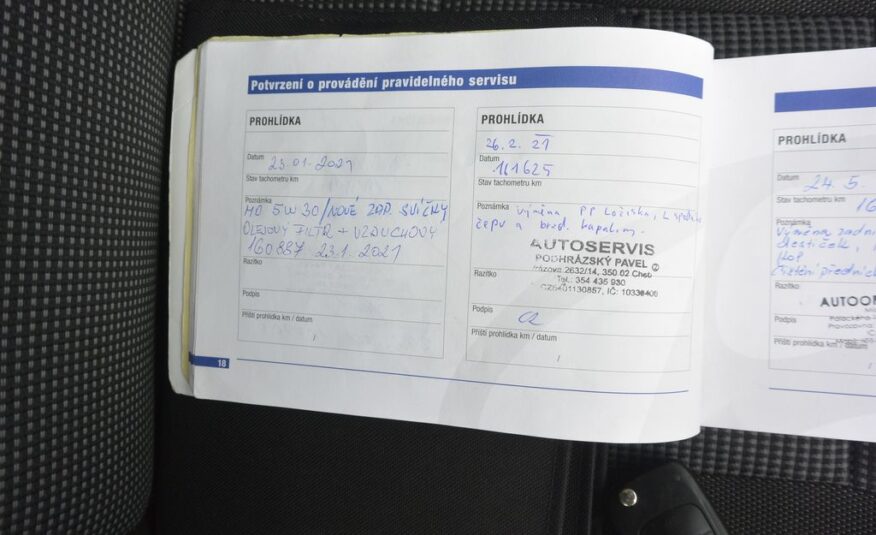 Potvrzení o provádění pravidelného servisu
PROHLÍDKA
Datum 23.01.2021
Stav tachometru km
Poznámka
MO 5W30/NOVÉ ZAP. SVÍČKY
OLEJOVÝ FILTR + VZDUCHOVÝ
160887 23.1.2021
Razítko
Podpis
Příští prohlídka km / datum
/
18
PROHLÍDKA
26.2. 21
Datum
161625
Stav tachometru km
Poznámka výměna PP Ložiska, L
čepu a brzd. kapaliny.
AUTOSERVIS
PODHRÁZSKÝ PAVEL
2632/14, 350 02 Cheb
Tel.: 354 435 930
IČ: 10336400
Razítko
Podpis
Příští prohlídka km / datum
/
PROHLÍDKA
Datum 24.5.
Stav tachometru km 16
Poznámka
Výměna zadní
destiček,
čištění předních
Razítko
Podpis
Příští prohlídka km / datum